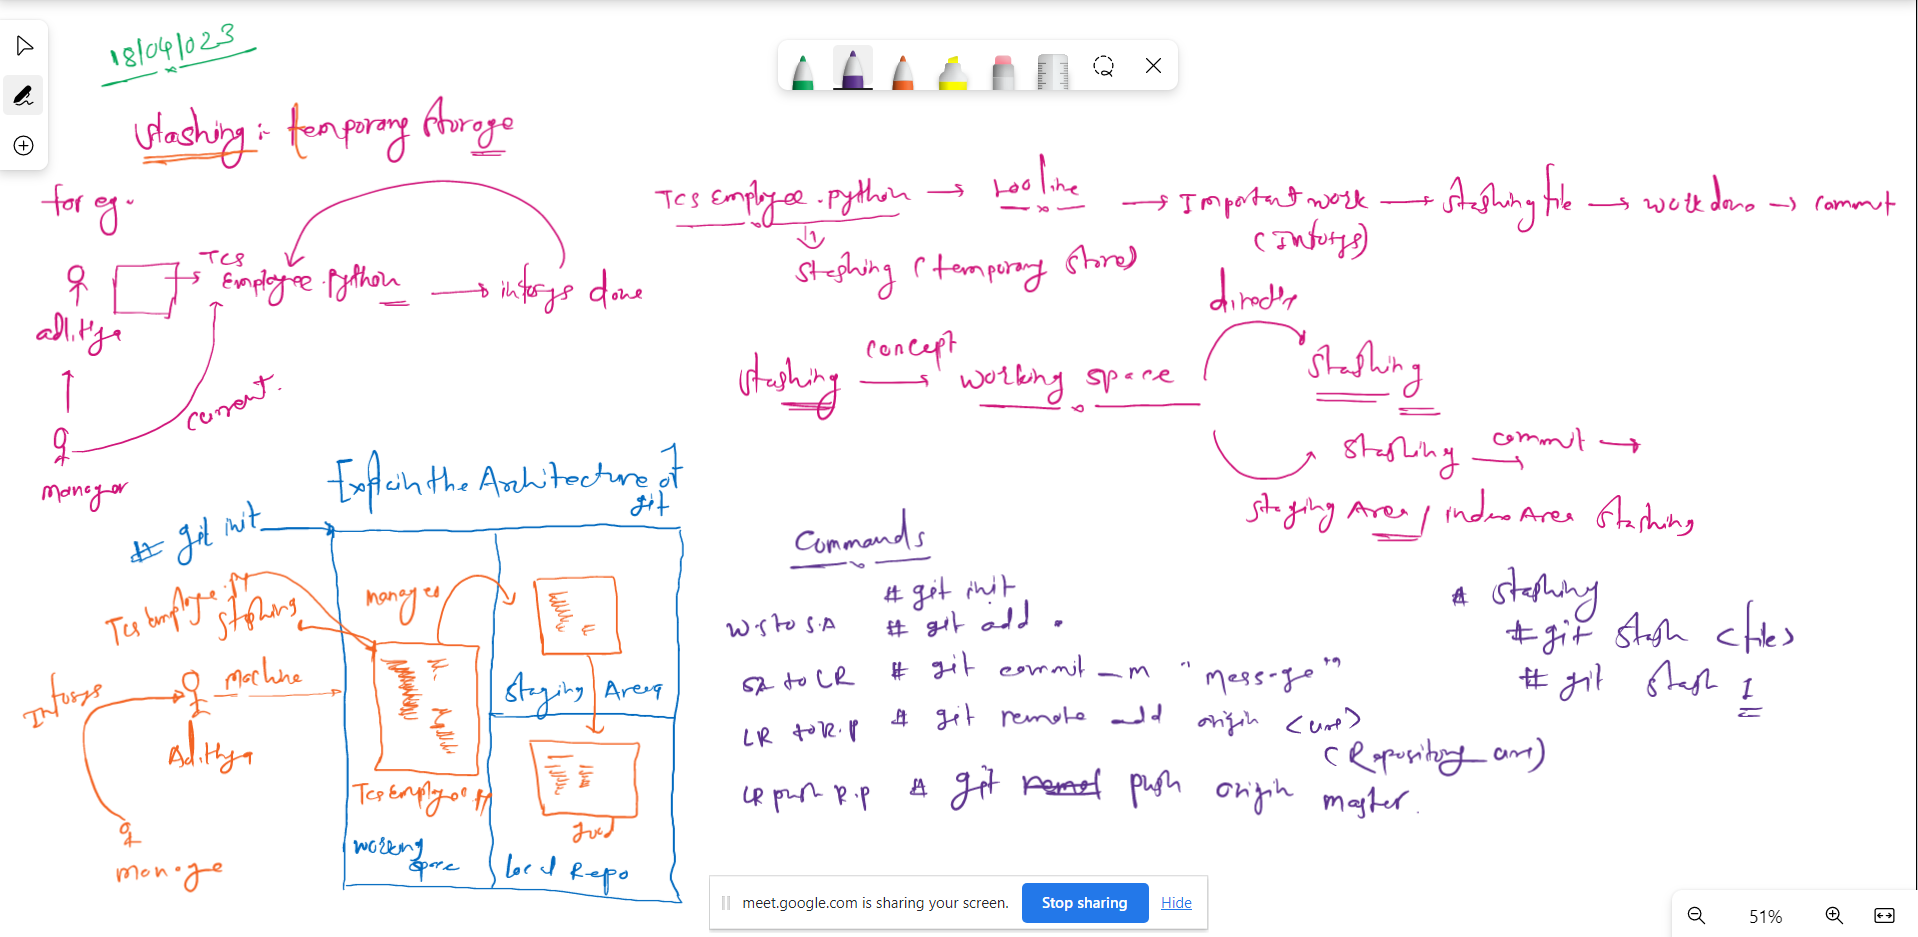 18/04/023
Stashing :- temporary storage
for eg.
TCS
Employee.python → infosys done
adlitya
current.
manager
TCS Employee.python → 100 line → Important work → Stashing file → work done → commit
(Infosys)
Stashing (temporary store)
directly
Stashing → concept working space
Stashing
Stashing → commit →
Staging Area / index Area Stashing
Explain the Architecture of
git
# git init
Tcs Employee.py
Stashing
manages
Infosys
machine
Adithya
manage
Staging Area
Tcs Employee py
working
space
local Repo
Commands
# git init
W.S to S.A # git add .
SA to LR # git commit -m "message"
LR to R.P # git remote add origin <url>
(Repository url)
LR push R.P # git push origin master.
# Stashing
# git stash <file>
# git stash 1
meet.google.com is sharing your screen. Stop sharing Hide
51%